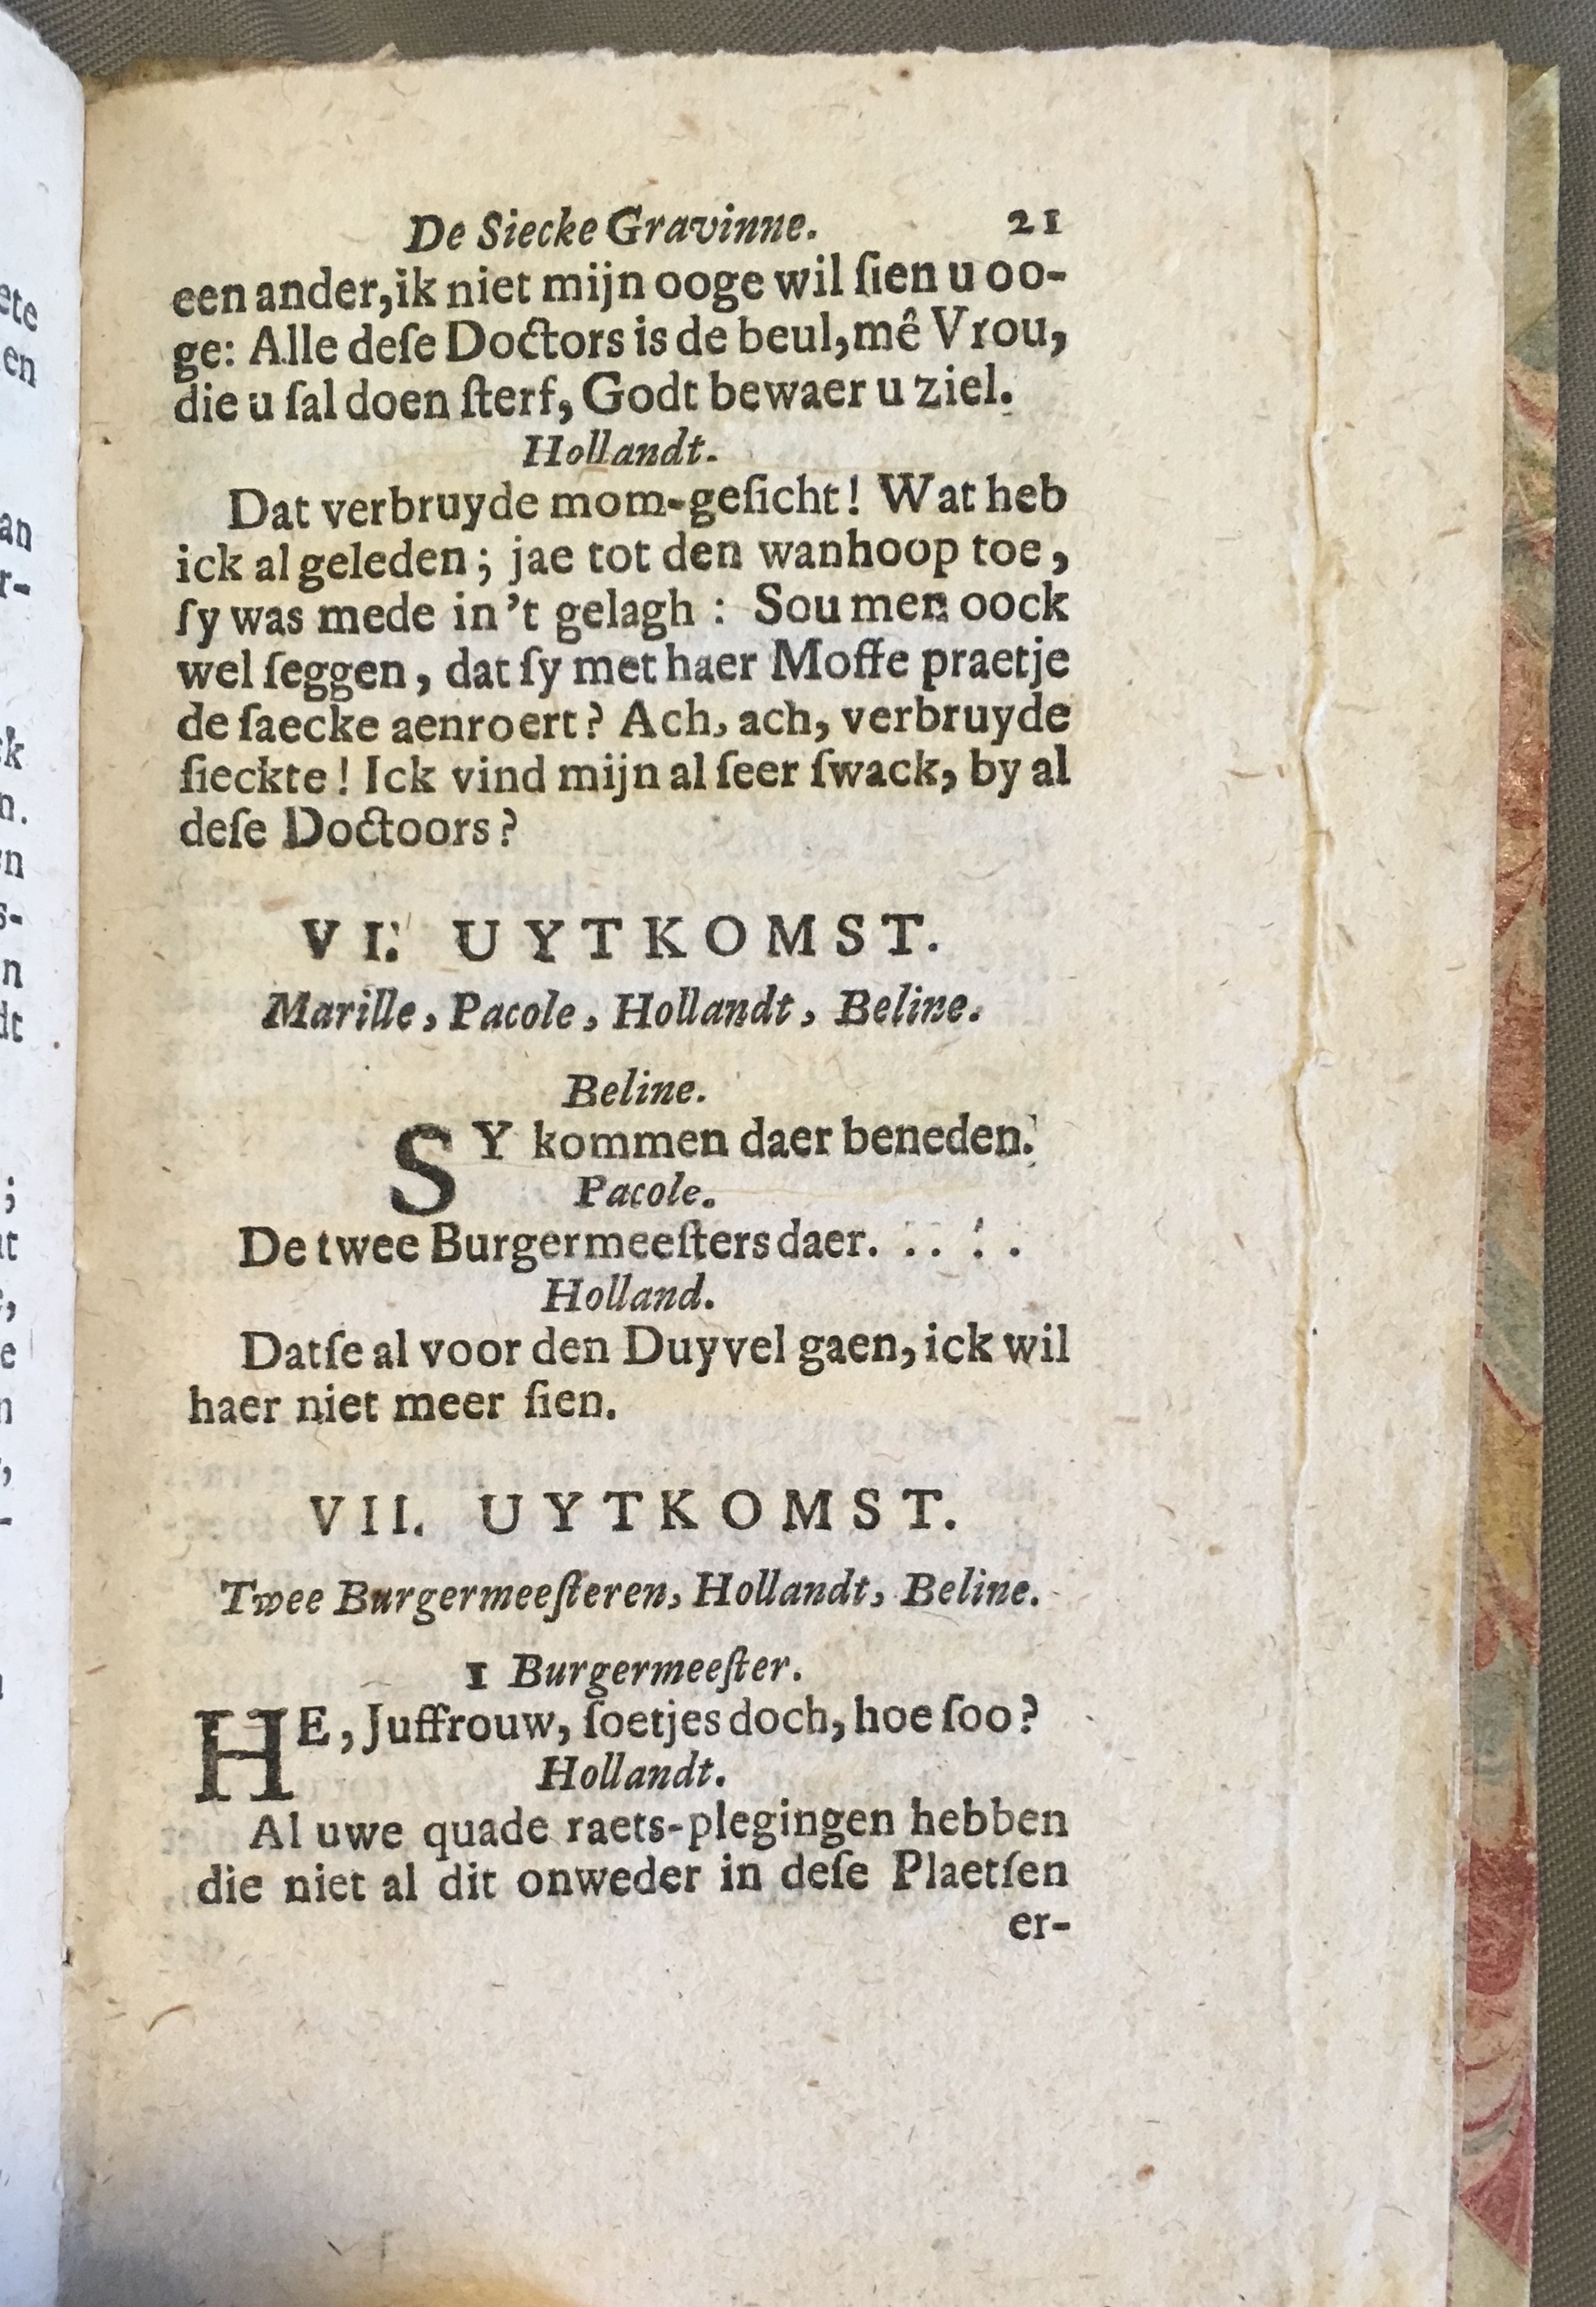 De Siecke Gravinne. 21
een ander, ik niet mijn ooge wil ſien u oo-
ge: Alle deſe Doctors is de beul, mê Vrou,
die u ſal doen ſterf, Godt bewaer u ziel.
Hollandt.
Dat verbruyde mom-geſicht! Wat heb
ick al geleden; jae tot den wanhoop toe,
ſy was mede in 't gelagh: Sou men oock
wel ſeggen, dat ſy met haer Moffe praetje
de ſaecke aenroert? Ach, ach, verbruyde
ſieckte! Ick vind mijn al ſeer ſwack, by al
deſe Doctoors?
VI. UYTKOMST.
Marille, Pacole, Hollandt, Beline.
Beline.
SY kommen daer beneden.
Pacole.
De twee Burgermeeſters daer. . . . .
Holland.
Datſe al voor den Duyvel gaen, ick wil
haer niet meer ſien.
VII. UYTKOMST.
Twee Burgermeeſteren, Hollandt, Beline.
1 Burgermeeſter.
HE, Juffrouw, ſoetjes doch, hoe ſoo?
Hollandt.
Al uwe quade raets-plegingen hebben
die niet al dit onweder in deſe Plaetſen
er-